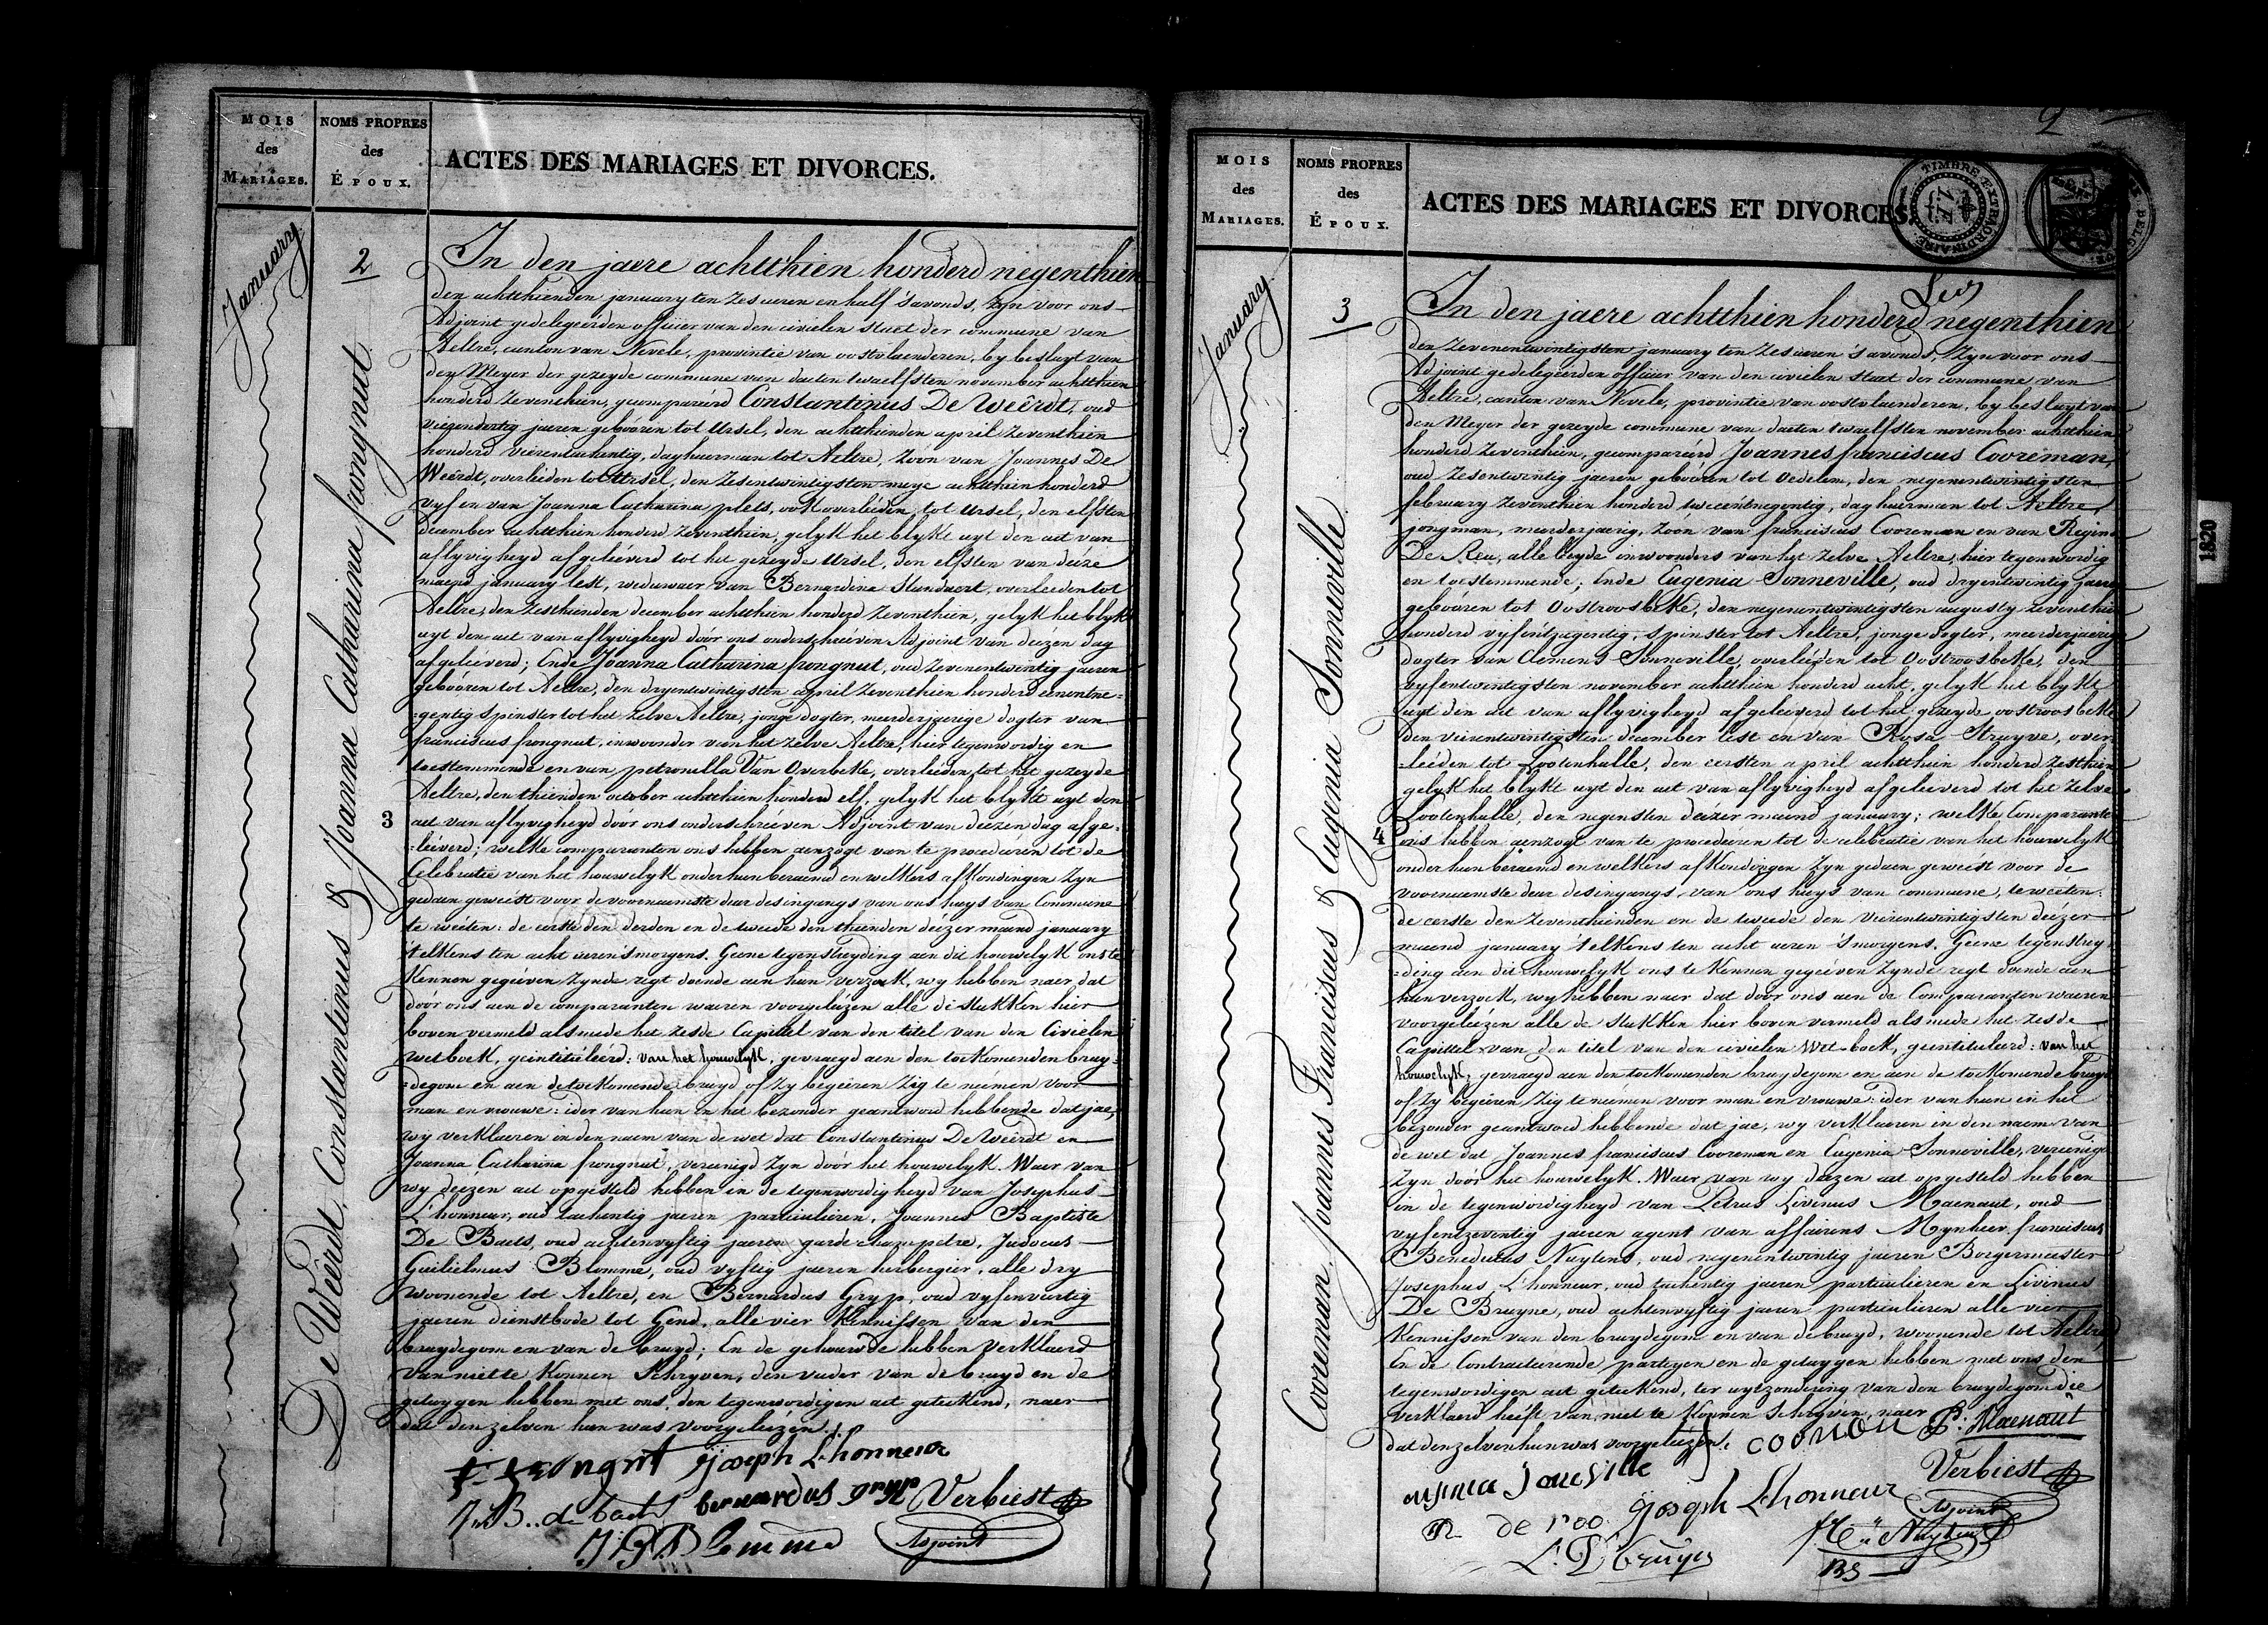 MOIS
des
MARIAGES.
NOMS PROPRES
des
ÉPOUX.
ACTES DES MARIAGES ET DIVORCES.
January
2
De Weêrdt, Constantinus & Joanna Catharina frongnut
In den jaere achtthien honderd negenthien
den achtthienden january ten zes ueren en half s'avonds, zyn voor ons
Adjoint gedelegeerden officier van den civielen staet der commune van
Aeltre, canton van Nevele, provintie van oostvlaenderen, by besluyt van
den Meyer der gezeyde commune van daeten twaelfsten november achtthien
honderd zeventhien, gecompareerd Constantinus De Weêrdt, oud
vierendertig jaeren gebooren tot Ursel, den achtthienden april zeventhien
honderd vierentachentig, daghuerman tot Aeltre, zoon van Joannes De
Weêrdt, overleiden tot Ursel, den zesentwintigsten meye achtthien honderd
vyf en van Joanna Catharina plets, ook overleiden tot Ursel, den elfsten
december achtthien honderd zeventhien, gelyk het blykt uyt den act van
aflyvigheyd afgeleéverd tot het gezeyde Ursel, den elfsten van deéze
maend january lest, weduwaer van Bernardina Standaert, overleeden tot
Aeltre, den zesthienden december achtthien honderd zeventhien, gelyk het blykt
uyt den act van aflyvigheyd dóór ons onderschreeven Adjoint van deézen dag
afgeleéverd; Ende Joanna Catharina frongnut, oud zevenentwintig jaeren
gebóóren tot Aeltre, den dryentwintigsten april zeventhien honderd eenentne=
=gentig spinster tot het zelve Aeltre, jonge dogter, meerderjaerige dogter van
franciscus frongnut, inwoonder van het zelve Aeltre, hier tegenwordig en
toestemmende en van petronilla Van Overbeke, overleiden tot het gezeyde
Aeltre, den thienden october achtthien honderd elf, gelyk het blykt uyt den
3 act van aflyvigheyd door ons onderschreéven Adjoint van deézen dag afge=
=leéverd; welke comparanten ons hebben aenzogt van te procederen tot de
Celebratie van het houwelyk onder hun beraemd en welkers afkondingen zyn
gedaen geweést voor de voornaemste deur des ingangs van ons huys van Commune
te weéten: de eerste den derden en de tweede den thienden deézer maend january
telkens ten acht ueren s'morgens. Geene tegenstreyding aen dit houwelyk ons te
kennen gegeéven zynde regt doende aen hun verzoek, wy hebben naer dat
dóór ons aen de comparanten waeren voorgeleézen alle de stukken hier
boven vermeld als mede het zesde Capittel van den titel van den Civielen
wetboek, geïntituleérd: van het houwelyk, gevraegd aen den toekomenden bruy=
=degom en aen de toekomende bruyd of zy begeéren zig te neémen voor
man en vrouwe: ider van hun in het bezonder geantword hebbende dat jae,
wy verklaeren in den naem van de wet dat Constantinus De Weêrdt en
Joanna Catharina frongnut, vereenigd zyn dóór het houwelyk. Waer van
wy deézen act opgesteld hebben in de tegenwordigheyd van Josephus
L'honneur, oud tachentig jaeren particulieren, Joannes Baptiste
De Baets, oud achtenvyftig jaeren garde champetre, Judocus
Guilielmus Blomme, oud vyftig jaeren herbergier, alle dry
woonende tot Aeltre, en Bernardus Gryp, oud vyfenveertig
jaeren dienstbode tot Gend, alle vier kennissen van den
bruydegom en van de bruyd; En de gehouwde hebben verklaerd
van niet te konnen schryven, den vader van de bruyd en de
getuygen hebben met ons, den tegenwordigen act geteekend, naer
dat den zelven hun was voorgeleézen.
F. frongnt Joseph L'honneur
J. B. de baets bernardus gryp Verbiest
J. G. Blomme Adjoint
2
MOIS
des
MARIAGES.
NOMS PROPRES
des
ÉPOUX.
ACTES DES MARIAGES ET DIVORCES.
TIMBRE EXTRAORDINAIRE
January
3
Cooreman, Joannes Franciscus & Eugenia Sonneville
In den jaere achtthien honderd negenthien
den zevenentwintigsten january ten zes ueren s'avonds, zyn voor ons
Adjoint gedelegeerden officier van den civielen staet der commune van
Aeltre, canton van Nevele, provintie van oostvlaenderen, by besluyt van
den Meyer der gezeyde commune van daeten twaelfsten november achtthien
honderd zeventhien, gecompareérd Joannes franciscus Cooreman,
oud zesentwintig jaeren gebóóren tot Oedelem, den negenentwintigsten
february zeventhien honderd tweeëntnegentig, daghuerman tot Aeltre,
jongman, meerderjaerig, zoon van franciscus Cooreman en van Regina
De Reu, alle beyde inwoonders van het zelve Aeltre, hier tegenwordig
en toestemmende; Ende Eugenia Sonneville, oud dryentwintig jaeren
gebóóren tot Oostroosbeke, den negenentwintigsten augusty zeventhien
honderd vyfentnegentig, spinster tot Aeltre, jonge dogter, meerderjaerige
dogter van Clemens Sonneville, overleiden tot Oostroosbeke, den
vyfentwintigsten november achtthien honderd acht, gelyk het blykt
uyt den act van aflyvigheyd afgeleéverd tot het gezeyde oostroosbeke
den vierentwintigsten december lest en van Rosa Struyve, over=
=leéden tot Lootenhulle, den eersten april achtthien honderd zesthien
gelyk het blykt uyt den act van aflyvigheyd afgeleéverd tot het zelve
Lootenhulle, den negensten deézer maend january; welke Comparanten
4 ons hebben aenzogt van te procedeéren tot de celebratie van het houwelyk
onder hun beraemd en welkers afkondingen zyn gedaen geweest voor de
voornaemste deur des ingangs van ons huys van commune, te weéten:
de eerste den zeventhienden en de tweede den vierentwintigsten deézer
maend january telkens ten acht ueren 's morgens. Geene tegenstrey=
=ding aen dit houwelyk ons te kennen gegeéven zynde regt doende aen
hun verzoek, wy hebben naer dat dóór ons aen de Comparanten waeren
voorgeleézen alle de stukken hier boven vermeld als mede het zesde
Capittel van den titel van den civielen Wet-boek, geïntituleerd: van het
houwelyk, gevraegd aen den toekomenden bruydegom en aen de toekomende bruyd
of zy begeéren zig te neémen voor man en vrouwe: ider van hun in het
bezonder geantword hebbende dat jae, wy verklaeren in den naem van
de wet dat Joannes franciscus Cooreman en Eugenia Sonneville, vereenigd
zyn dóór het houwelyk. Waer van wy deézen act opgesteld hebben
in de tegenwordigheyd van Petrus Livinus Maenaut, oud
vyfentzeventig jaeren agent van affairens Mynheer franciscus
Benedictus Nuytens, oud negenentwintig jaeren Borgermeester
Josephus L'honneur, oud tachentig jaeren particulieren en Livinus
De Bruyne, oud achtenvyftig jaeren particulieren alle vier
kennissen van den bruydegom en van de bruyd, woonende tot Aeltre,
En de Contracterende partyen en de getuygen hebben met ons den
tegenwordigen act geteekend, ter uytzondering van den bruydegom die
verklaerd heeft van niet te konnen schryven, naer
dat den zelven hun was voorgeleézen.
P. Maenaut
Verbiest
Joseph L'honneur
Adjoint
1820